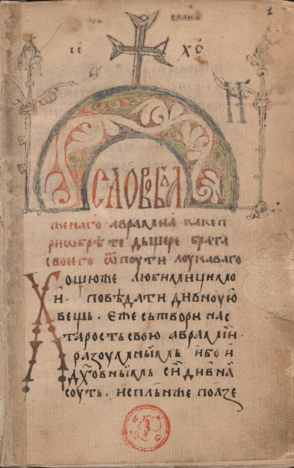 ІС ХС
СЛОВО БЛА
женаго авраамиа како п
риѡбрѣте дъщере брата
своего ѿ поути лоукаваго
Хощоу же любимици мо
и. повѣдати дивноую
вещь. еже сътвори на с
тарость свою авраамїи.
разоумнымь ибо и
дх҃овнымь сїи дивна
соуть. испльнже пользе